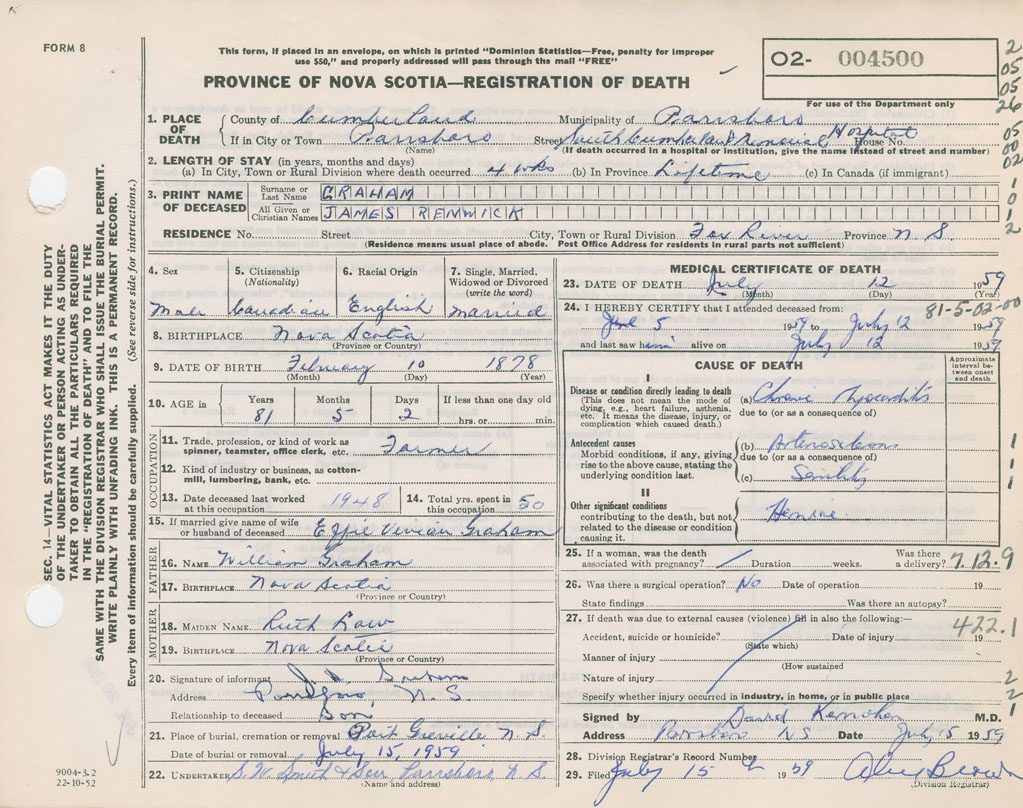 FORM 8
This form, if placed in an envelope, on which is printed "Dominion Statistics—Free, penalty for improper
use $50," and properly addressed will pass through the mail "FREE"
PROVINCE OF NOVA SCOTIA—REGISTRATION OF DEATH
O2- 004500
For use of the Department only
2
05
05
26
05
00
02
1
0
1
2
SEC. 14—VITAL STATISTICS ACT MAKES IT THE DUTY
OF THE UNDERTAKER OR PERSON ACTING AS UNDER-
TAKER TO OBTAIN ALL THE PARTICULARS REQUIRED
IN THE "REGISTRATION OF DEATH" AND TO FILE THE
SAME WITH THE DIVISION REGISTRAR WHO SHALL ISSUE THE BURIAL PERMIT.
WRITE PLAINLY WITH UNFADING INK. THIS IS A PERMANENT RECORD.
Every item of information should be carefully supplied. (See reverse side for instructions.)
1. PLACE OF DEATH
County of Cumberland Municipality of Parrsboro
If in City or Town Parrsboro Street South Cumberland Memorial Hospital House No.
(Name) (If death occurred in a hospital or institution, give the name instead of street and number)
2. LENGTH OF STAY (in years, months and days)
(a) In City, Town or Rural Division where death occurred 4 wks (b) In Province Lifetime (c) In Canada (if immigrant)
3. PRINT NAME OF DECEASED
Surname or Last Name GRAHAM
All Given or Christian Names JAMES RENWICK
RESIDENCE No. Street City, Town or Rural Division Fox River Province N.S.
(Residence means usual place of abode. Post Office Address for residents in rural parts not sufficient)
4. Sex Male
5. Citizenship (Nationality) Canadian
6. Racial Origin English
7. Single, Married, Widowed or Divorced (write the word) Married
8. BIRTHPLACE Nova Scotia
(Province or Country)
9. DATE OF BIRTH February 10 1878
(Month) (Day) (Year)
10. AGE in Years Months Days If less than one day old
81 5 2 hrs. or min.
OCCUPATION
11. Trade, profession, or kind of work as
spinner, teamster, office clerk, etc. Farmer
12. Kind of industry or business, as cotton-
mill, lumbering, bank, etc.
13. Date deceased last worked at this occupation 1948
14. Total yrs. spent in this occupation 50
15. If married give name of wife
or husband of deceased Effie Vivian Graham
FATHER
16. NAME William Graham
17. BIRTHPLACE Nova Scotia
(Province or Country)
MOTHER
18. MAIDEN NAME Ruth
19. BIRTHPLACE Nova Scotia
(Province or Country)
20. Signature of informant
Address Parrsboro, N.S.
Relationship to deceased Son
21. Place of burial, cremation or removal Port Greville N.S.
Date of burial or removal July 15, 1959
22. UNDERTAKER S.W. Smith & Son, Parrsboro, N.S.
(Name and address)
9004-3.2
22-10-52
MEDICAL CERTIFICATE OF DEATH
23. DATE OF DEATH July 12 1959
(Month) (Day) (Year)
81-5-02-00
24. I HEREBY CERTIFY that I attended deceased from:
June 5 1959 to July 12 1959
and last saw him alive on July 12 1959
CAUSE OF DEATH
Approximate interval between onset and death
I
Disease or condition directly leading to death
(This does not mean the mode of
dying, e.g., heart failure, asthenia,
etc. It means the disease, injury, or
complication which caused death.)
(a) Chronic Myocarditis
due to (or as a consequence of)
Antecedent causes
Morbid conditions, if any, giving
rise to the above cause, stating the
underlying condition last.
(b) Arteriosclerosis
due to (or as a consequence of)
(c) Senility
1
1
1
II
Other significant conditions
contributing to the death, but not
related to the disease or condition
causing it.
25. If a woman, was the death
associated with pregnancy? Duration weeks. Was there a delivery?
7.12.9
26. Was there a surgical operation? No Date of operation 19
State findings Was there an autopsy?
27. If death was due to external causes (violence) fill in also the following:—
422.1
Accident, suicide or homicide? Date of injury 19
(State which)
Manner of injury
(How sustained
Nature of injury
2
Specify whether injury occurred in industry, in home, or in public place
2
1
Signed by David M.D.
Address Parrsboro NS Date July 15 1959
28. Division Registrar's Record Number
29. Filed July 15 1959
(Division Registrar)